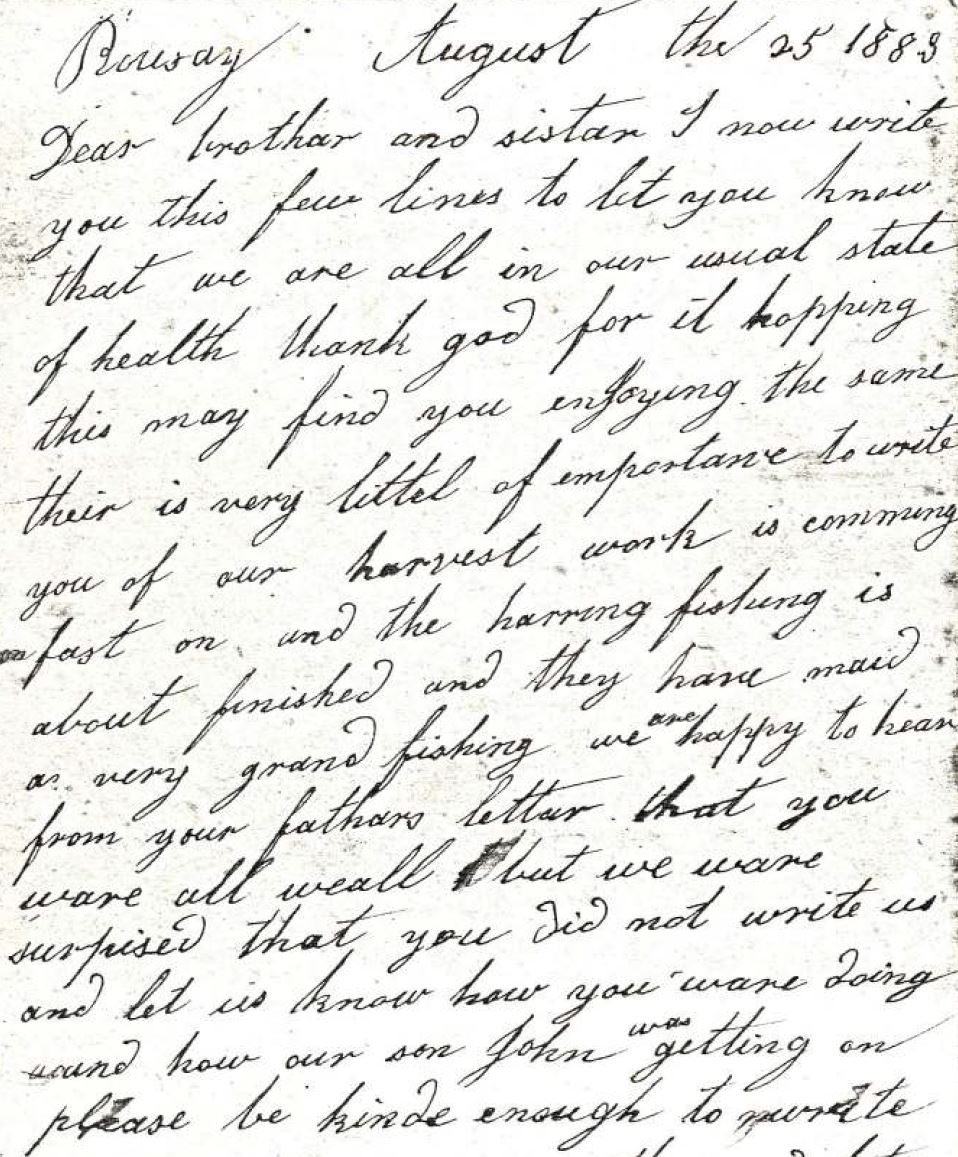 Rousay August the 25 1883
Dear brothar and sistar I now write
you this few lines to let you know
that we are all in our usual state
of health thank god for it hopping
this may find you enjoying the same
their is very littel of emportance to write
you of our harvest work is comming
on fast on and the harring fishing is
about finished and they have maid
a very grand fishing we are happy to hear
from your fathars lettar that you
ware all weall but we ware
surpised that you did not write us
and let us know how you ware doing
and how our son John was getting on
please be kinde enough to write